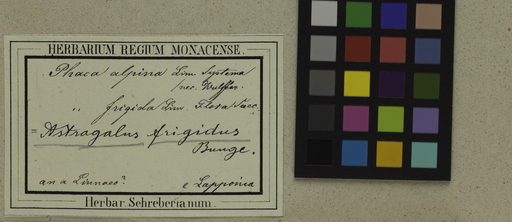 HERBARIUM REGIUM MONACENSE.
Phaca alpina Lin. Systema
nec. Wulffen.
" frigida Linn. Flora Suec.
= Astragalus frigidus
Bunge.
an a Linnaeo? e Lapponia
Herbar. Schreberianum.